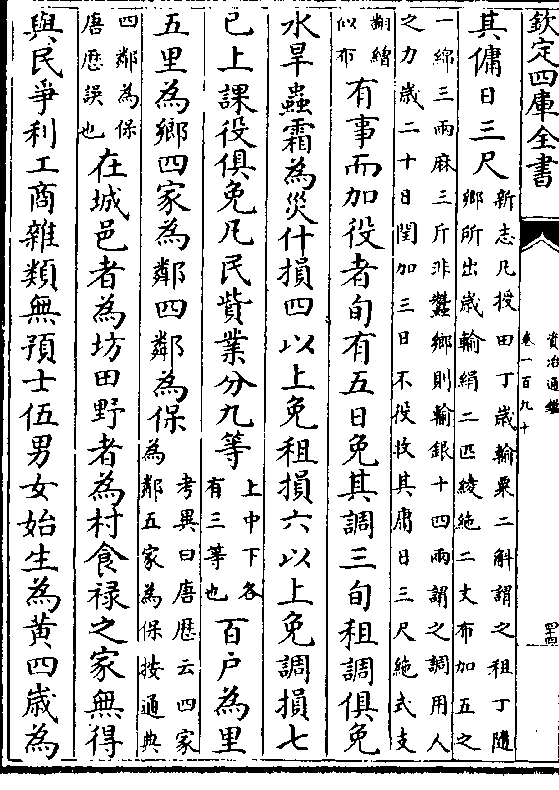 欽定四庫全書
資治通鑑
卷一百九十
其傭日三尺
新志凡授田丁歲輸粟二斛謂之租丁隨
鄉所出歲輸絹二匹綾絁二丈布加五之
一綿三兩麻三斤非蠶鄉則輸銀十四兩謂之調用人
之力歲二十日閏加三日不役收其庸日三尺絁式支
翻繒
似布
有事而加役者旬有五日免其調三旬租調俱免
水旱蟲霜為災什損四以上免租損六以上免調損七
已上課役俱免凡民貲業分九等
上中下各
有三等也
百户為里
五里為鄉四家為鄰四鄰為保
考異曰唐歷云四家
為鄰五家為保按通典
四鄰為保
唐歷誤也
在城邑者為坊田野者為村食禄之家無得
與民爭利工商雜類無預士伍男女始生為黃四歲為